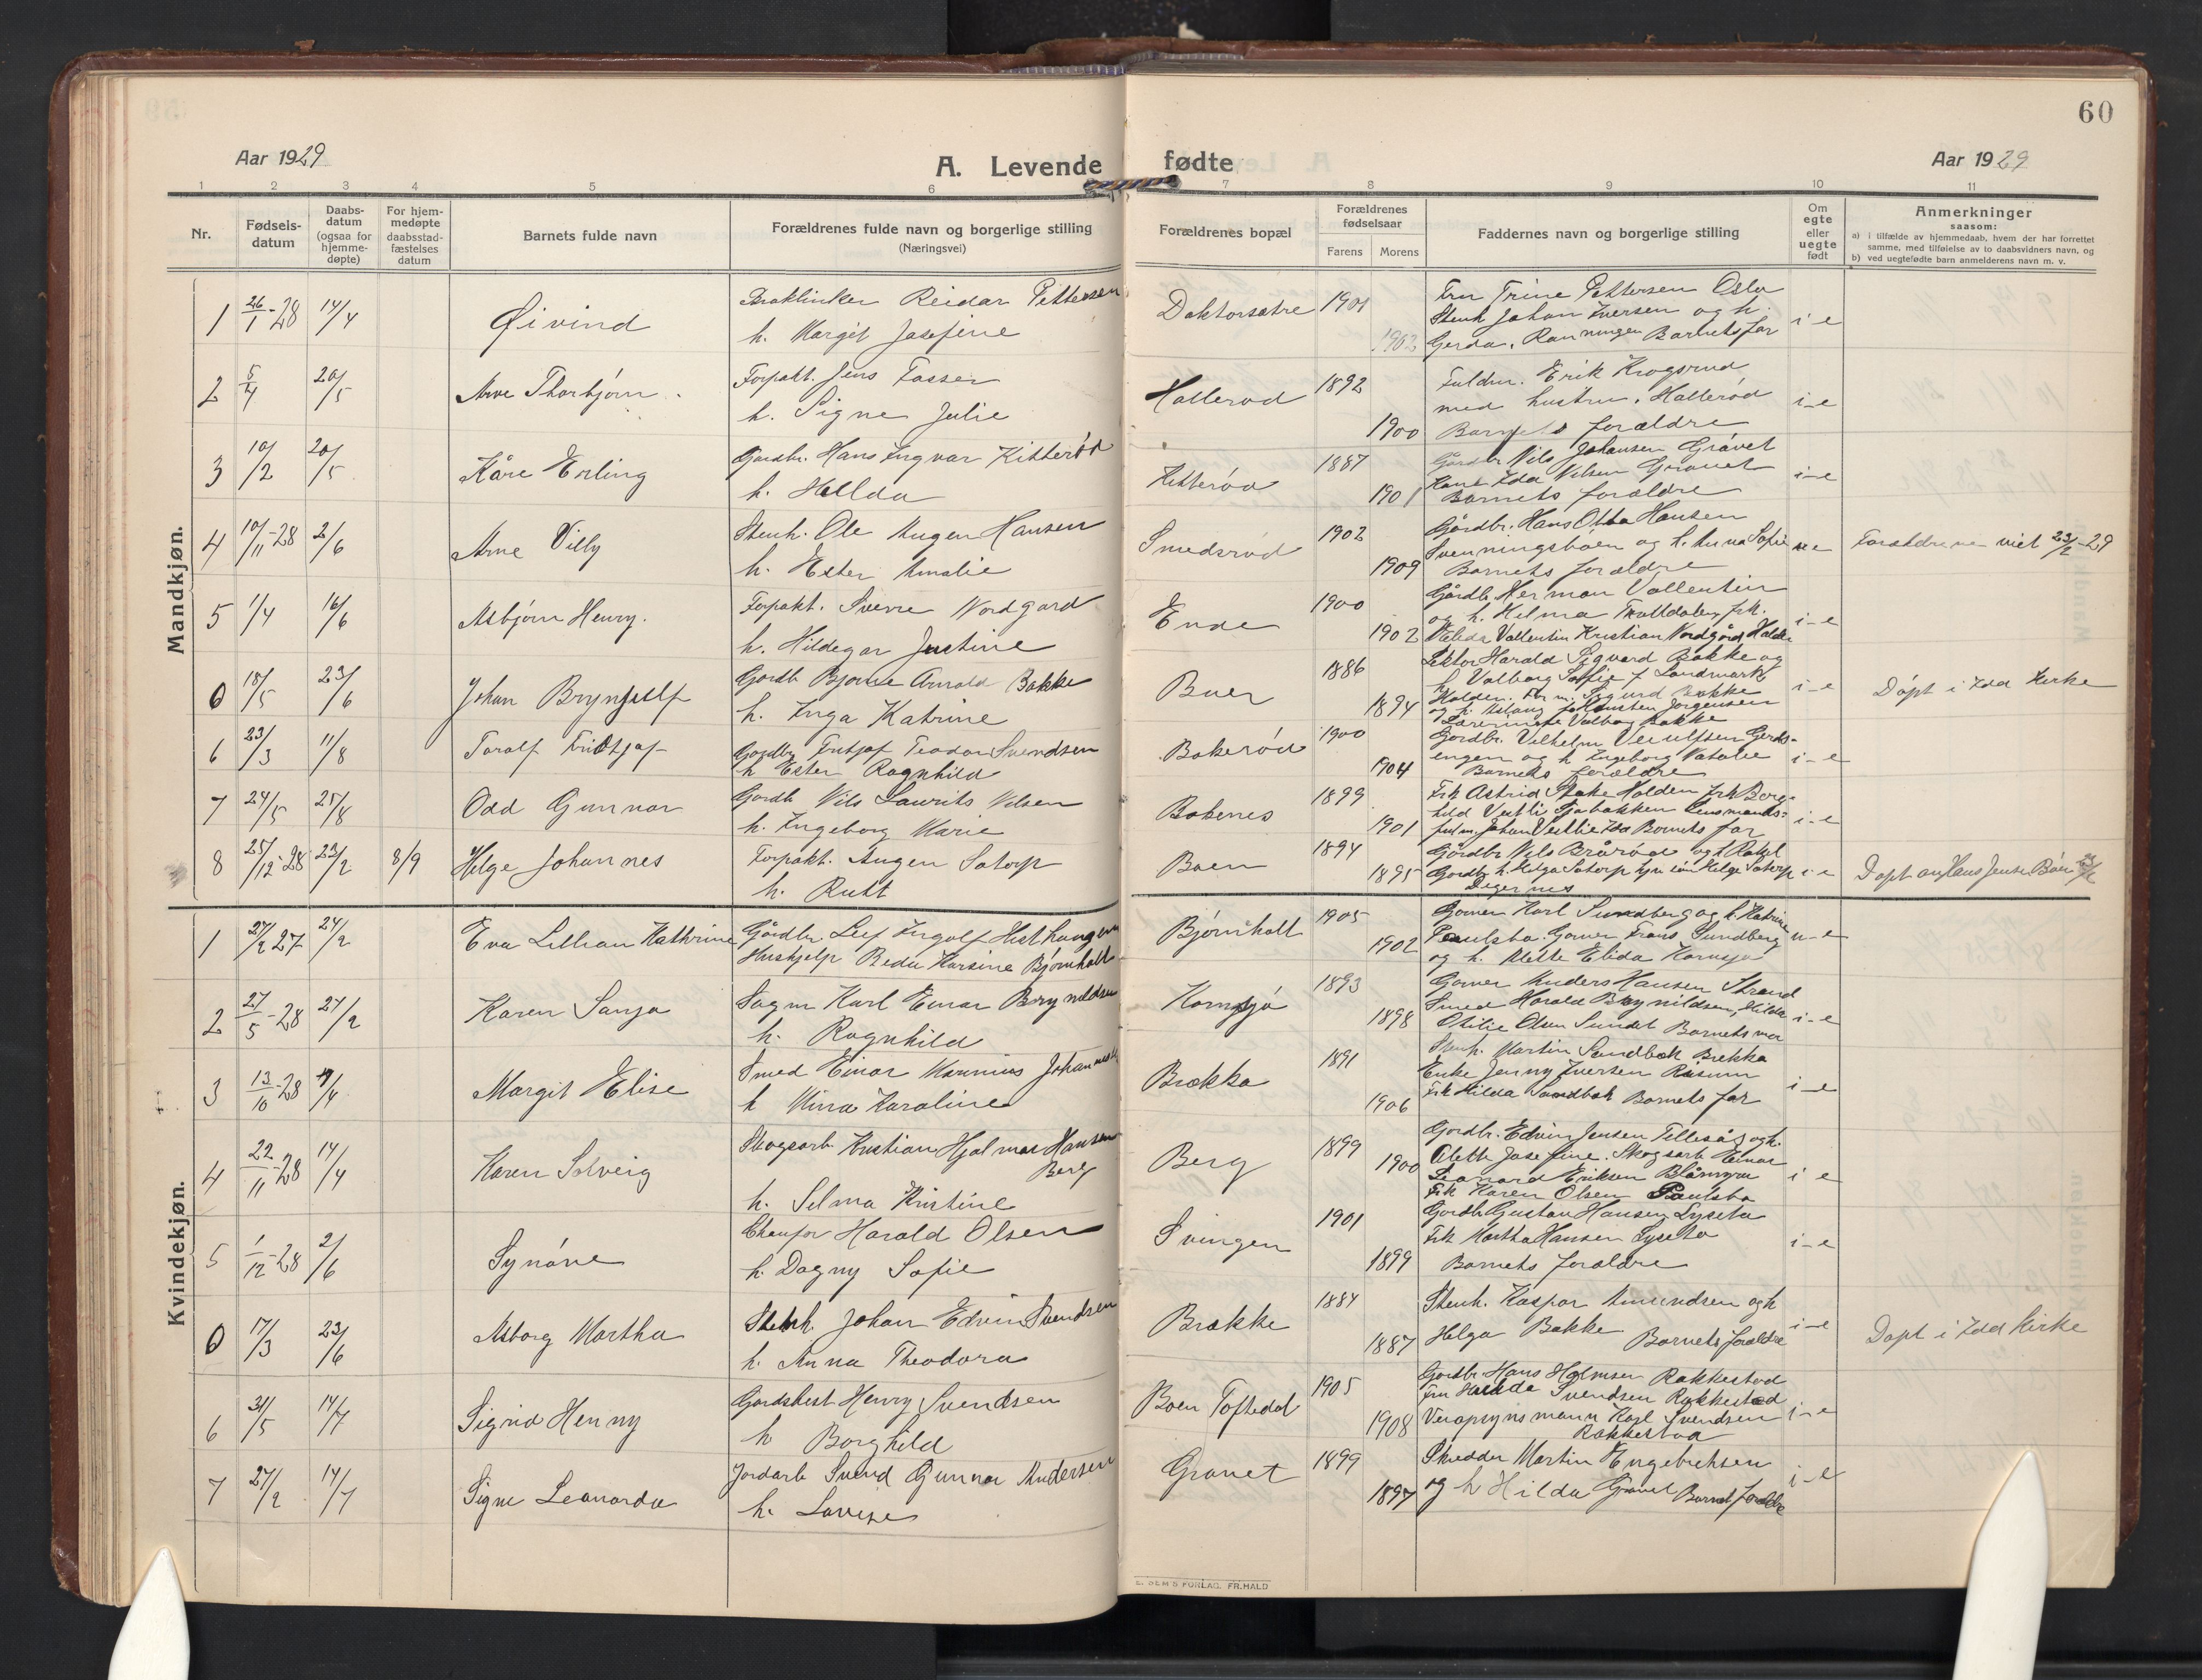 60
Aar 1929
A. Levende fødte
Aar 1929
1 2 3 4 5 6 7 8 9 10 11
Nr.
Fødsels-
datum
Daabs-
datum
(ogsaa for
hjemme-
døpte)
For hjem-
medøpte
daabsstad-
fæstelses
datum
Barnets fulde navn
Forældrenes fulde navn og borgerlige stilling
(Næringsvei)
Forældrenes bopæl
Forældrenes
fødselsaar
Farens Morens
Faddernes navn og borgerlige stilling
Om
egte
eller
uegte
født
Anmerkninger
saasom:
a) i tilfælde av hjemmedaab, hvem der har forrettet
samme, med tilføielse av to daabsvidners navn, og
b) ved uegtefødte barn anmelderens navn m. v.
Mandkjøn.
1 26/1-28 14/4 Øivind
Reidar Pettersen
h. Margit Josefine
Doktorsætre 1901
1902
Fru Trine Pettersen Oslo
Stenh. Johan Iversen og h.
Gerda, Barnets far
i-e
2 5/4 20/5 Arve Thorbjørn
Forpakt. Jens Tosser
h. Signe Julie
Hallerød 1892
1900
Fuldm. Erik Krogsrud
med hustru, Hallerød
Barnets forældre
i-e
3 10/2 20/5 Kåre Erling
Gårdbr. Hans Ingvar Kitterød
h. Hilda
Kitterød 1887
1901
Gårdbr. Nils Johansen Gråvet
Kone Ida Nilsen Gravet
Barnets forældre
i-e
4 10/11-28 2/6 Arne Villy
Stenh. Ole Augen Hansen
h. Ester Amalie
Smedsrød 1902
1909
Gårdbr. Hans Otto Hansen
Svenningsbøen og h. Anna Sofie
Barnets forældre
u e
Forældrene viet 23/2-29
5 1/4 16/6 Asbjørn Henry.
Forpakt. Sverre Nordgard
h. Hildegar Justine
Ende 1900
1902
Gårdb. Herman Vallentin
og h. Hilma frk.
Vallentin Kristian Nordgård, Halden
i-e
0 18/5 23/6 Johan Brynjulf
Gårdb. Bjarne Arnold Bakke
h. Inga Katrine
Buer 1886
1894
Lektor Harald Sigvard Bakke og
h. Valborg Sofie f. Landmark
Halden. Sigurd Bakke
og h. Aslaug Jørgensen
Lærerinde Valborg Bakke
i-e
Døpt i Idd Kirke
6 23/3 11/8 Toralf Fridtjof
Gårdbr. Fritjof Teodor Svendsen
h Ester Ragnhild
Bakerød 1900
1904
Gårdbr. Vilhelm Gjerds-
engen og h Ingeborg Natalie
Barnets forældre
i-e
7 24/5 25/8 Odd Gunnar
Gårdb. Nils Laurits Nilsen
h. Ingeborg Marie
Bakenes 1899
1901
Frk Astrid Stake Halden frk Borg-
hild Lensmands-
fulm. Johan Idd Barnets far
i-e
8 25/12-28 23/2 8/9 Helge Johannes
Forpakt. Augen Satorp
h. Rutt
Boen 1894
1895
Gårdbr Nils Brårød og f. Rakel
Gårdbr h. Helga Satorp Helge Satorp
Degernes
i-e
Døpt av Hans Jensen Bøen
Kvindekjøn.
1 27/2 27 24/2 Eva Lillian Kathrine
Gårdbr. Leif Ingolf
Hushjelp Reda Karsine Bjørnholt
Bjørnholt 1905
1902
Gomer Karl Sundberg og h. Katrine
Paulsbo. Gomer Frans Sundberg
og h. Alette Elida Kornsjø
u-e
2 27/5-28 24/2 Karen Sanja
Karl Einar Brynildsen
h. Ragnhild
Kornsjø 1893
1898
Gomer Anders Hansen Strand
Smed Harald Brynildsen, Hilda
Otilie Olsen Sundet Barnets mor
i-e
3 13/10-28 4/4 Margit Elise
Smed Einar Johannes
h Mina Karoline
Brække 1891
1906
Stenh. Martin Sandbæk Brekke
Enke Jenny Iversen Risum
Frk Hilda Sandbæk Barnets far
i-e
4 22/11-28 14/4 Karen Solveig
Skogsarb. Kristian Hjalmar Hansen
Berg
h. Selma Kristine
Berg 1899
1900
Gårdbr. Edvin Jensen og h.
Alette Josefine. Skogsarb Einar
Leonard Eriksen Blåmyra
Frk Karen Olsen Paulsbo
i e
5 1/12-28 2/6 Synøve
Chaufør Harald Olsen
h. Dagny Sofie
Svingen 1901
1899
Gårdb. Gustav Hansen Lyseto
Frk Martha Hansen Lyseto
Barnets forældre
i-e
0 17/3 23/6 Asborg Martha
Stenh. Johan Edvin Svendsen
h. Anna Theodora
Brække 1884
1887
Stenh. Kaspar Amundsen og h
Helga Bakke Barnets forældre
i-e
Døpt i Idd Kirke
6 31/5 14/7 Sigrid Henny
Gårdsbest Henry Svendsen
h Borghild
Boen Toftedal 1905
1908
Gårdbr Hans Holmsen Rakkestad
Fru Svendsen Rakkestad
Karl Svendsen
Rakkestad
i-e
7 27/2 14/7 Signe Leonarda
Jordarb Svend Gunnar Andersen
h. Lovise
Gravet 1899
1897
Skredder Martin Engebretsen
og h Hilda Gravet Barnets forældre
i-e
E. SEM'S FORLAG. FR.HALD